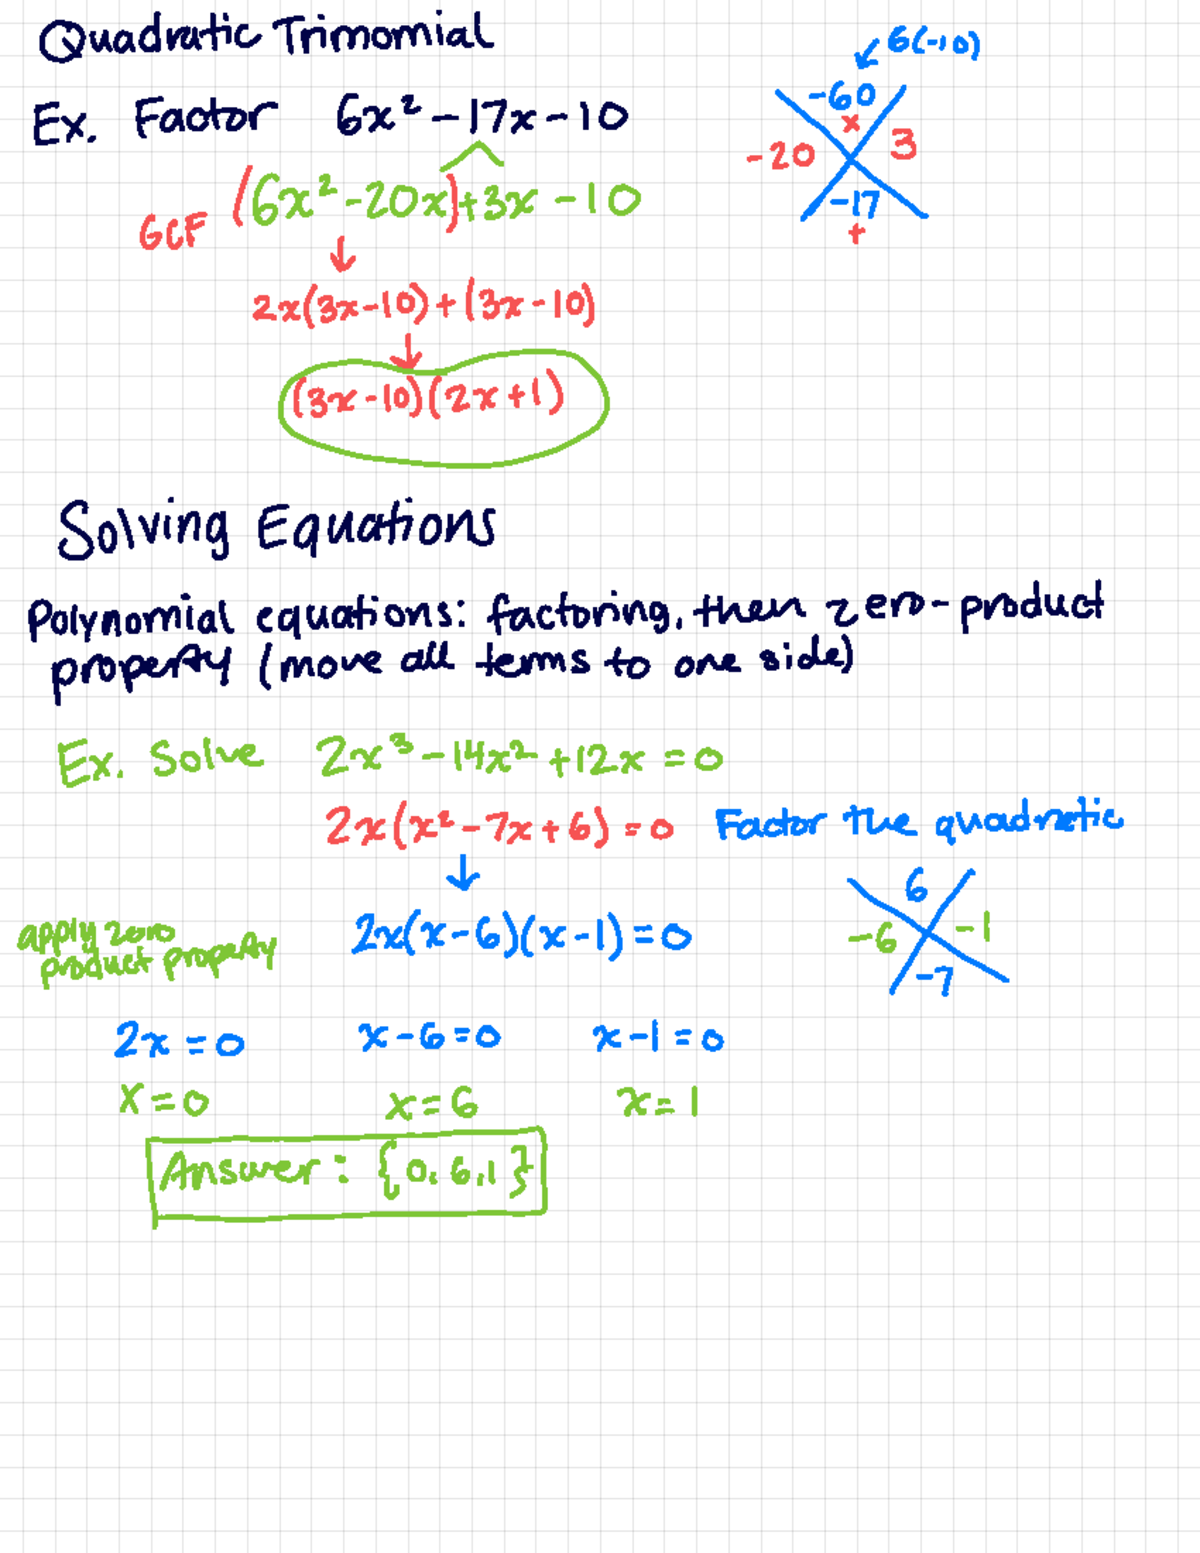 Quadratic Trimomial
6(-10)
Ex. Factor 6x² - 17x - 10
-60
x
-20 3
-17
+
(6x² - 20x) + 3x - 10
GCF
↓
2x(3x - 10) + (3x - 10)
↓
(3x - 10)(2x + 1)
Solving Equations
Polynomial equations: factoring, then zero-product
property (move all terms to one side)
Ex. Solve 2x³ - 14x² + 12x = 0
2x(x² - 7x + 6) = 0 Factor the quadratic
↓
6
-6 -1
-7
apply zero
product property
2x(x - 6)(x - 1) = 0
2x = 0 x - 6 = 0 x - 1 = 0
x = 0 x = 6 x = 1
Answer: {0, 6, 1}